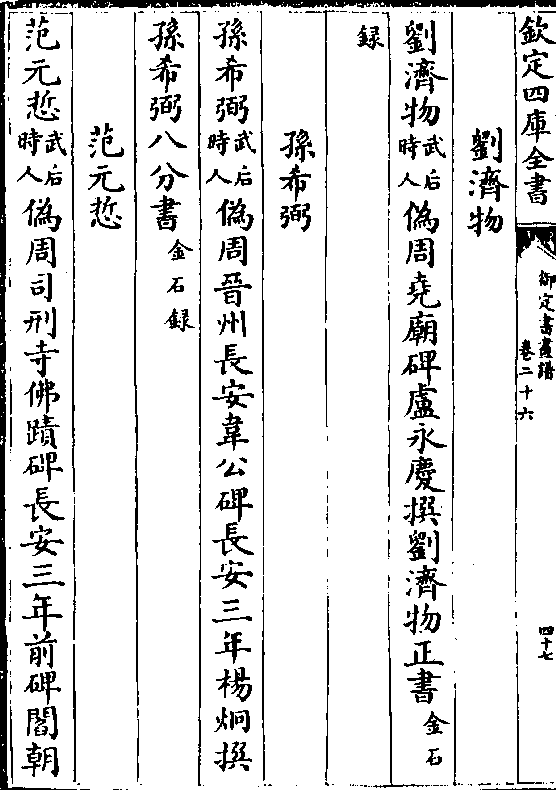 欽定四庫全書
御定書畫譜
卷二十六
四十七
劉濟物
劉濟物武后時人偽周堯廟碑盧永慶撰劉濟物正書金石
録
孫希弼
孫希弼武后時人偽周晉州長安韋公碑長安三年楊炯撰
孫希弼八分書金石録
范元悊
范元悊武后時人偽周司刑寺佛蹟碑長安三年前碑閻朝